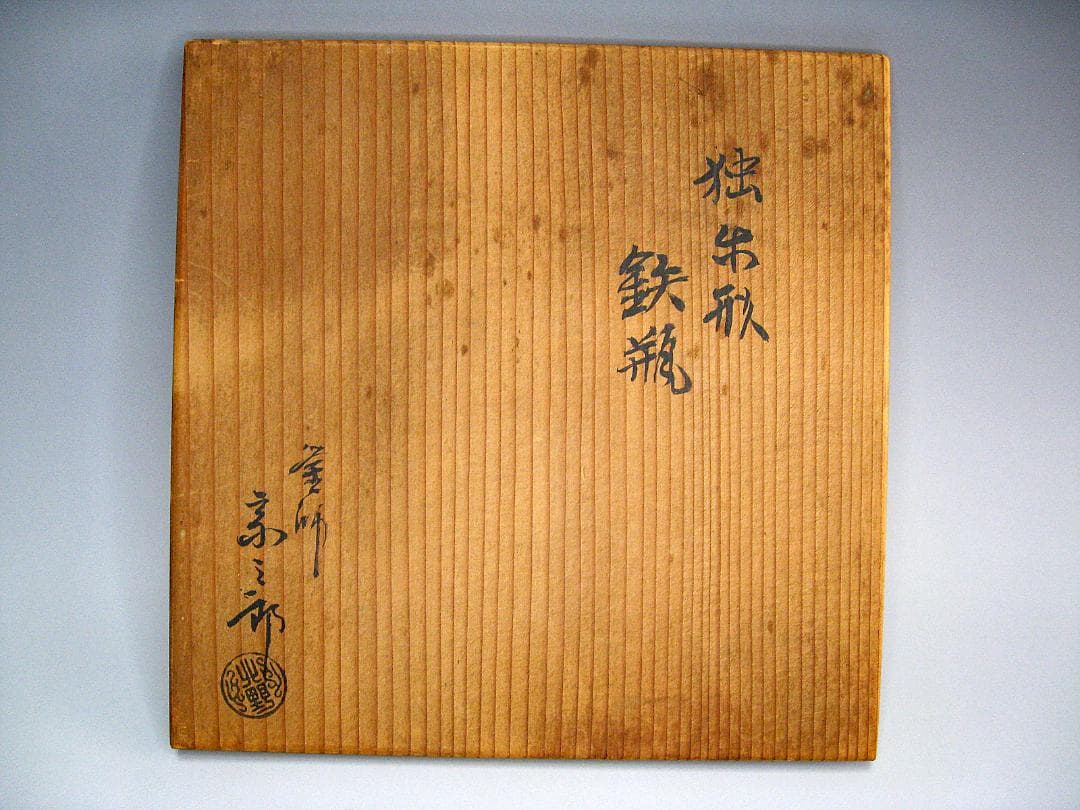 独楽形
鉄瓶
釜師
宗三郎